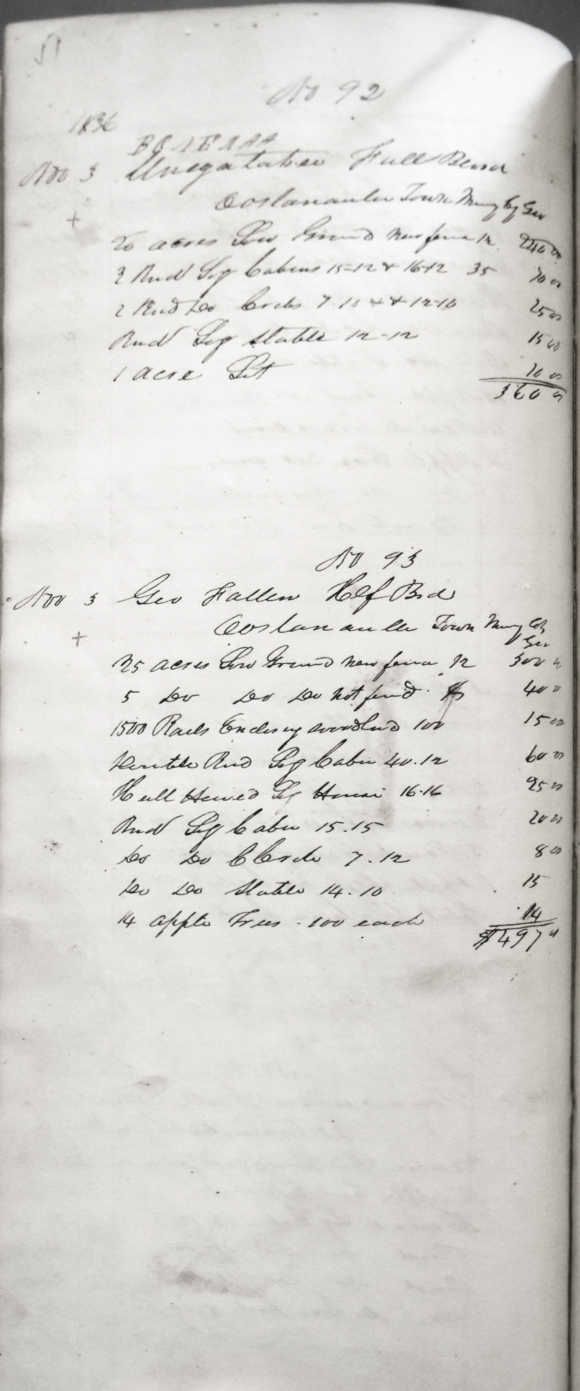 No 92
1836
Nov 3 Full Blood
Oostanaula Town Mury Cy Geo
+
20 acres Low Ground new fence 12 240 00
2 Rnd Log Cabins 15-12 & 16+12 35 70 00
2 Rnd Do Cribs 7.13 & 12-10 25 00
Rnd Log Stable 12-12 15 00
1 acre Lot 10 00
360 0
No 93
Nov 3 Geo Fallen Hlf Brd
Oostanaulla Town Mury Co Geo
+
25 acres Low Ground new fence 12 300
5 Do Do Do not fend. 8 40 0
1500 Rails Enclosing woodland 100 15 00
Double Rnd Log Cabin 40.12 60 00
Hull Hewed Log House 16.16 25 00
Rnd Log Cabin 15.15 20 00
Do Do Crib 7.12 8 00
Do Do Stable 14.10 15
14 apple Trees . 100 each 14
$497